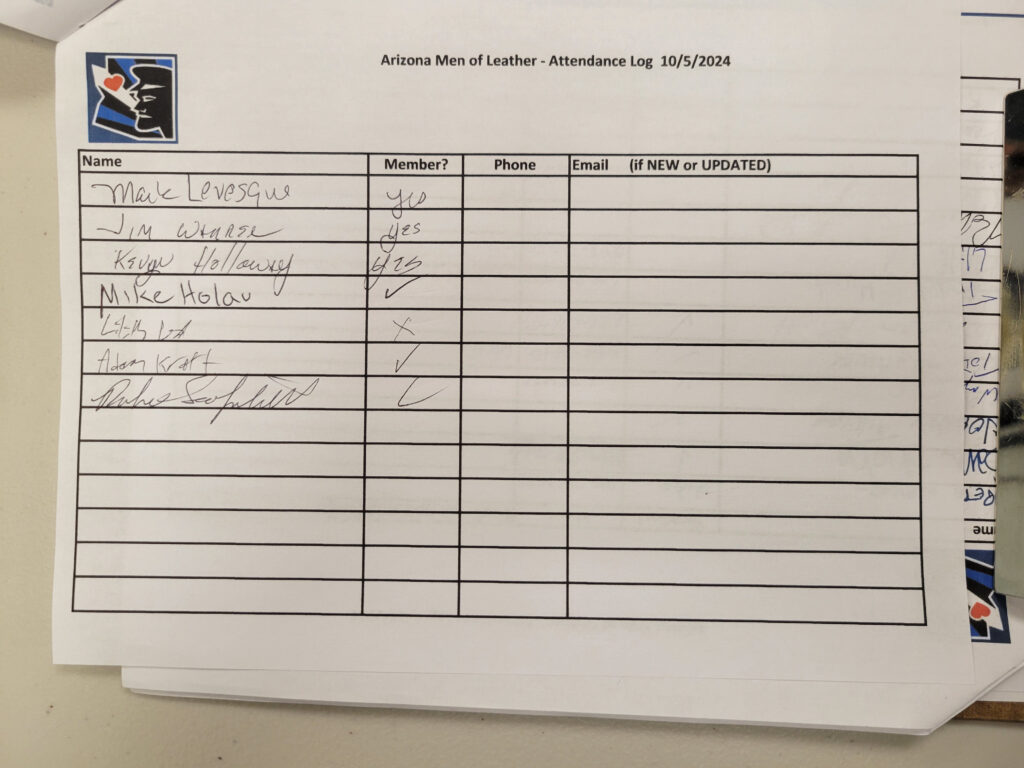 Arizona Men of Leather - Attendance Log 10/5/2024
Name Member? Phone Email (if NEW or UPDATED)
Mark Levesque yes
Jim yes
Kevyn Holloway yes
Mike Holau ✓
X
Adam Kraft ✓